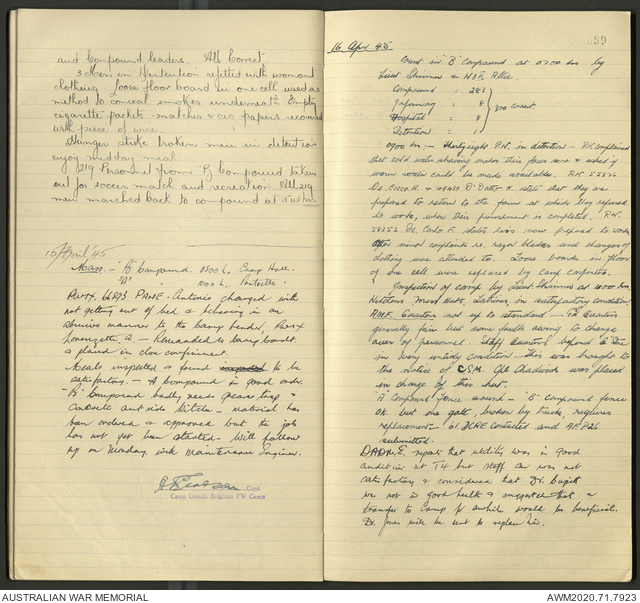 and Compound leaders. All Correct
3 Men in Detention refitted with
clothing. Loose floor board in one cell used as
method to conceal smokes underneath Empty
cigarette packets - matches & cig papers
with piece of wire.
Hunger strike broken men in detention
enjoy midday meal
219 Personnel from 'B' Compound taken
out for soccer match and recreation. All 219
men marched back to compound at
15/April '45
Mass. - 'B' Compound. 0800 h. Camp Hall.
'A' " 1000 h.
PWIX PANE. Antonio charged with
not getting out of bed & behaving in an
abusive manner to the camp leader, PWIX
- Remanded to
& placed in close confinement.
Meals inspected & found to be
satisfactory. - A Compound in good order.
'B' Compound badly needs grease trap &
concrete outside kitchen - material has
been ordered & approved but the job
has not yet been started - Will follow
up on Monday with Maintenance Engineer.
Capt
Camp Comdt. Brighton PW Camp
59
16 Apr 45
Count in 'B' Compound at 0700 hrs by
Lieut Skinner &
Compound : 283
Infirmary : 8
Hospital : 8
300 correct.
Detention : 1
0900 hrs - Thirty eight P.W. in detention - P.W. complained
that cold water shaving makes their faces sore & asked if
warm water could be made available. P.W. 55876
De Cicco A. & 49830 D'Datto H. state that they are
prepared to return to the farm at which they refused
to work, when their punishment is completed. P.W.
58752 De Carlo F. states he is now prepared to work.
Other minor complaints re. razor blades and changes of
clothing were attended to. Loose boards in floor
of one cell were replaced by camp carpenter.
Inspection of camp by Lieut Skinner at 1100 hrs
Kitchens, Mess Huts, Latrines, in satisfactory condition
A.M.F. Quarters not up to standard - Quarters
generally fair but some faults owing to change
over of personnel. Staff Quarters
in very untidy condition - this was brought to
the notice of CSM. Cpl Chadwick was placed
in charge of this hut.
'A' Compound fence sound - 'B' Compound fence
OK. but one gate, broken by truck, requires
replacement - contacted and AF. P26
submitted.
D.A.D.M.E. reports that utility was in good
condition at T4 but staff car was not
satisfactory & considered that Dr.
was not in good health & suggested that a
transfer to Camp for awhile would be beneficial.
Dr. Jones will be sent to replace him.
AUSTRALIAN WAR MEMORIAL
AWM2020.71.7923